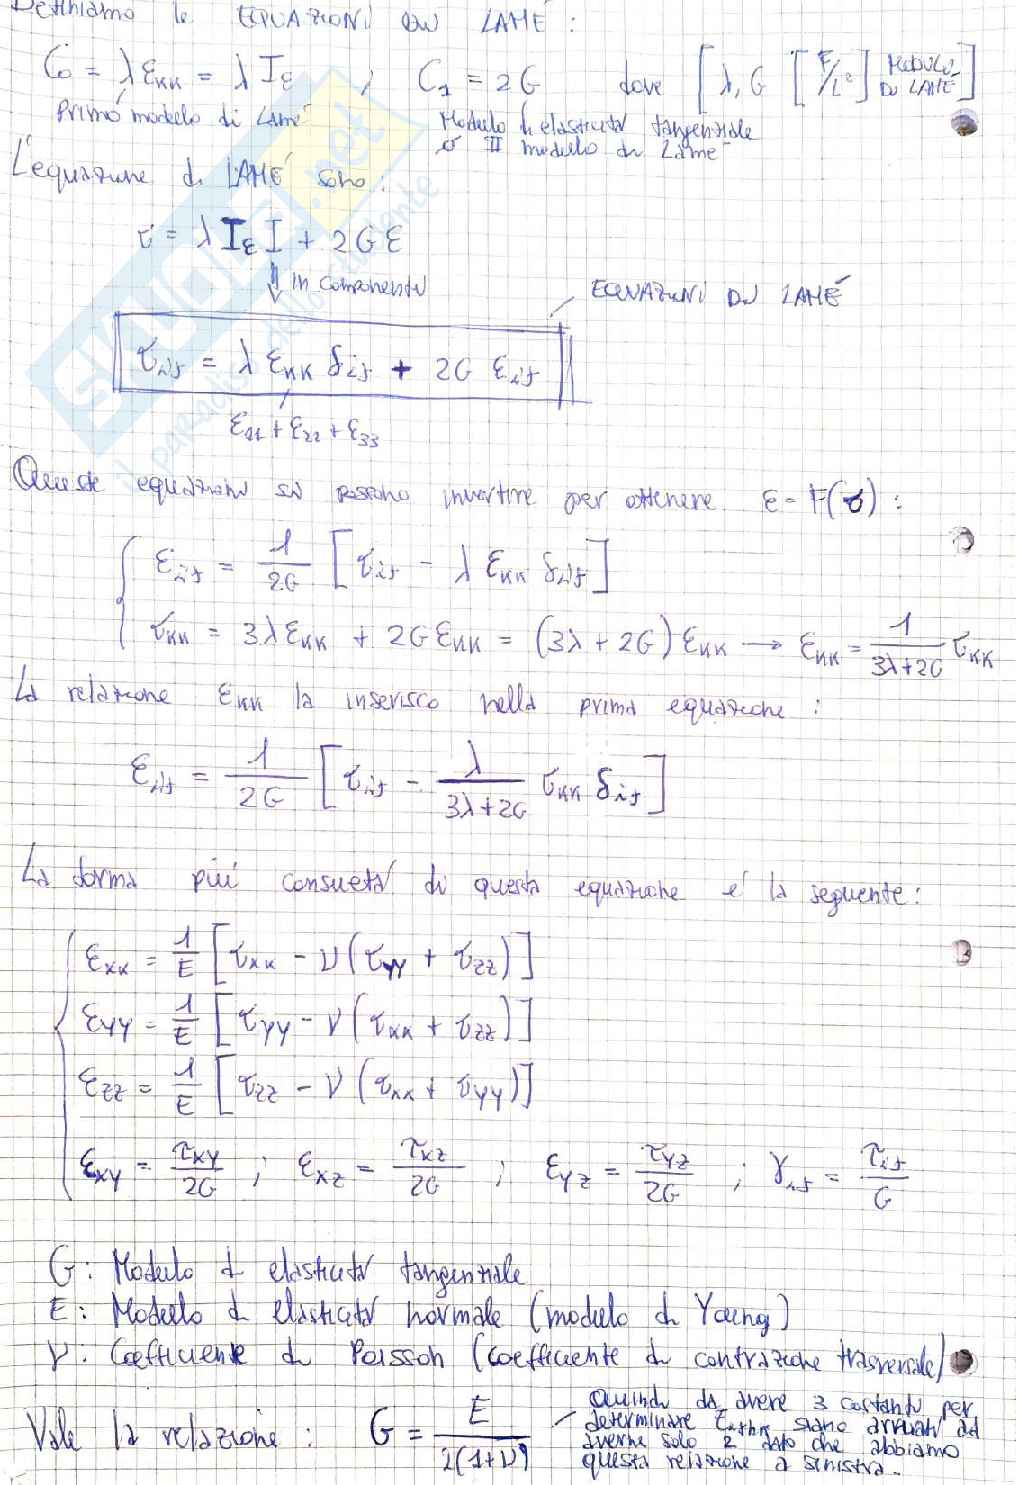 Definiamo le EQUAZIONI DI LAMÉ :
C₀ = λ εₖₖ = λ I_ε , C₁ = 2G dove [ λ, G [F/L²] MODULO DI LAMÉ ]
Primo modulo di Lamé
Modulo di elasticità tangenziale
o II modulo di Lamé
L'equazione di LAMÉ sono:
σ = λ I_ε I + 2G ε
⇓ in componenti
EQUAZIONI DI LAMÉ
σᵢⱼ = λ εₖₖ δᵢⱼ + 2G εᵢⱼ
ε₁₁ + ε₂₂ + ε₃₃
Queste equazioni si possono invertire per ottenere ε = F(σ) :
εᵢⱼ = 1/2G [ σᵢⱼ - λ εₖₖ δᵢⱼ ]
σₖₖ = 3λ εₖₖ + 2G εₖₖ = (3λ + 2G) εₖₖ → εₖₖ = 1/(3λ+2G) σₖₖ
La relazione εₖₖ la inserisco nella prima equazione :
εᵢⱼ = 1/2G [ σᵢⱼ - λ/(3λ+2G) σₖₖ δᵢⱼ ]
La forma più consueta di questa equazione è la seguente :
εxx = 1/E [ σxx - ν (σyy + σzz) ]
εyy = 1/E [ σyy - ν (σxx + σzz) ]
εzz = 1/E [ σzz - ν (σxx + σyy) ]
εxy = τxy/2G ; εxz = τxz/2G ; εyz = τyz/2G ; γᵢⱼ = τᵢⱼ/G
G : Modulo di elasticità tangenziale
E : Modulo di elasticità normale (modulo di Young)
ν : Coefficiente di Poisson (coefficiente di contrazione trasversale)
Vale la relazione : G = E/2(1+ν)
Quindi da avere 3 costanti per
determinare siamo arrivati ad
averne solo 2 dato che abbiamo
questa relazione a sinistra.
SKUOLA.net
il paradiso dello studente